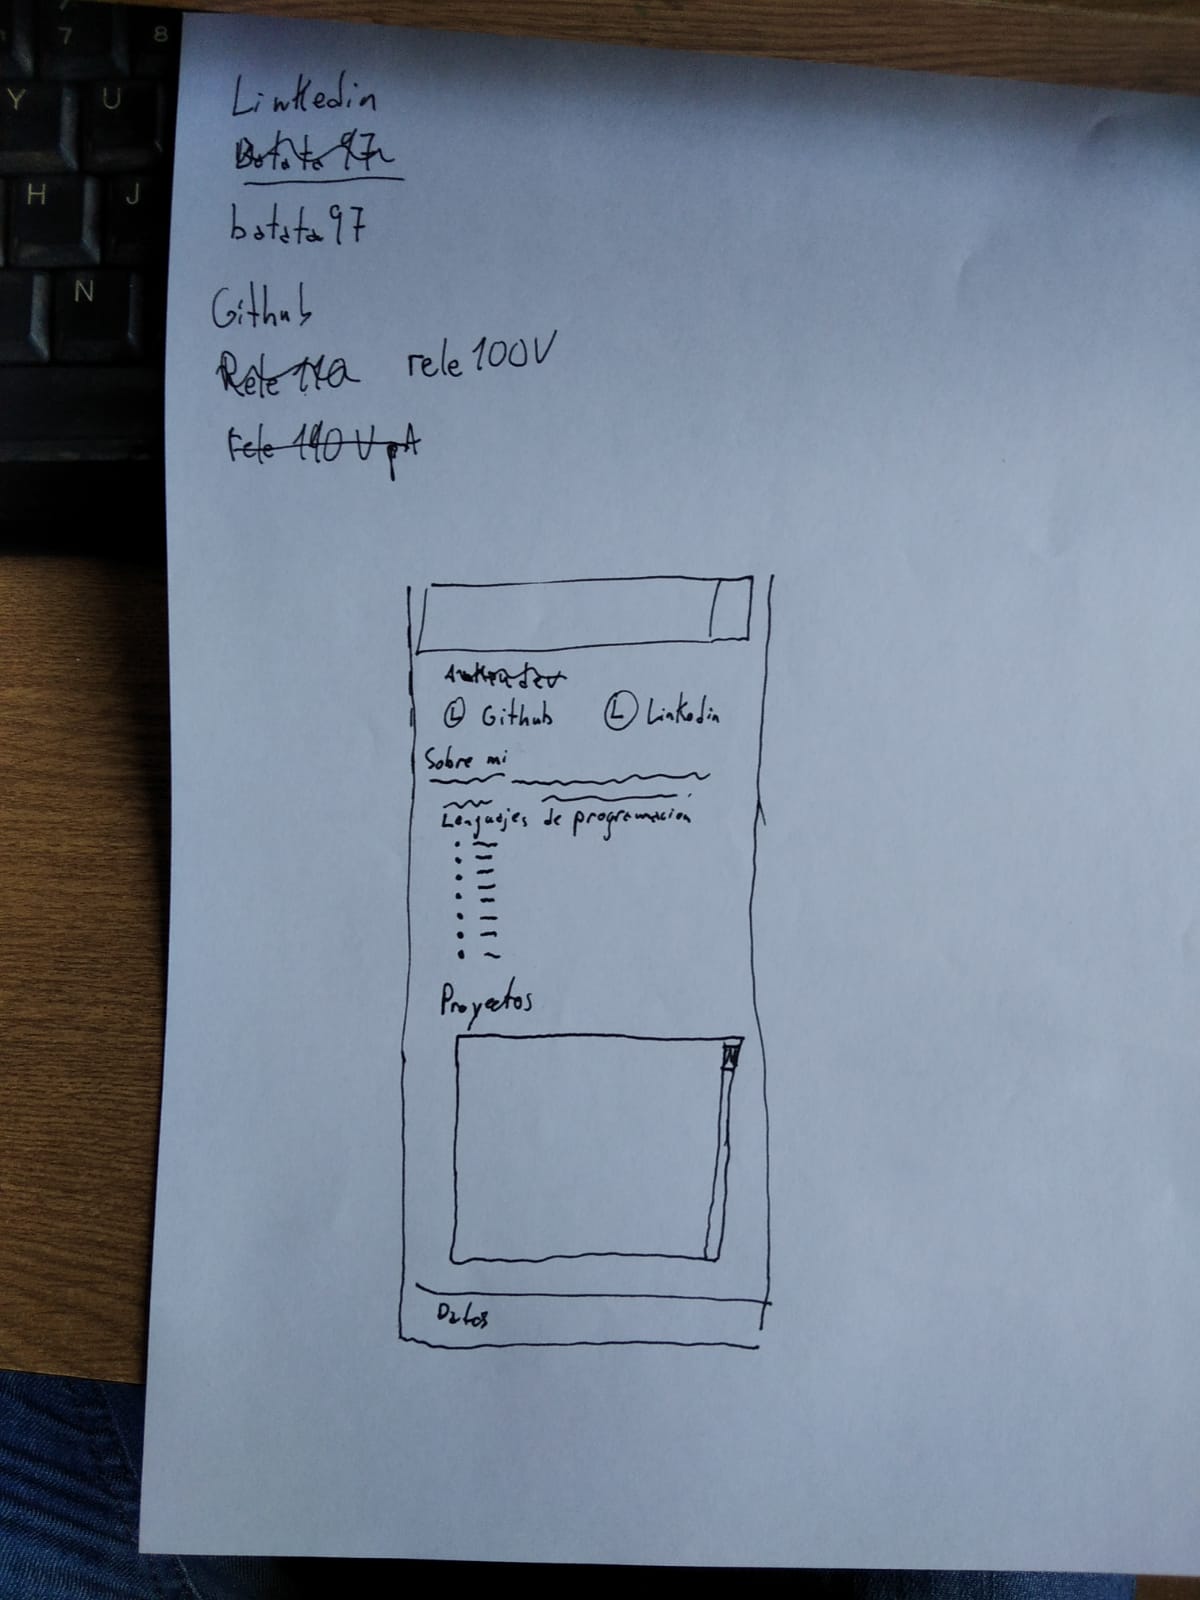 7 8
Y U
H J
N
Linkedin
Batata 97
batata97
Github
Rele 110 rele 100V
rele 110 V pA
L Github L Linkedin
Sobre mi
Lenguajes de programacion
Proyectos
Datos